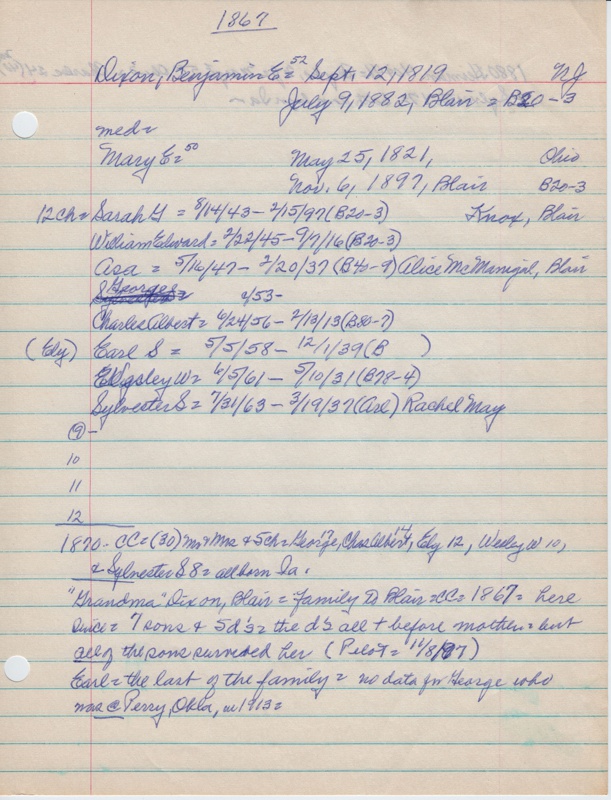 1867
Dixon, Benjamin E = 52 Sept. 12, 1819 NJ
July 9, 1882, Blair = B20-3
med =
Mary E = 50 May 25, 1821, Ohio
Nov. 6, 1897, Blair B20-3
12 ch = Sarah = 8/14/43 - 2/15/97 (B20-3) Knox, Blair
William Edward = 2/22/45 - 9/7/16 (B20-3)
Asa = 5/16/47 - 2/20/37 (B40-9) Alice McManigal, Blair
George 2/53 -
Charles Albert = 6/24/56 - 2/13/13 (B80-7)
(Ely) Earl S = 5/5/58 - 12/1/39 (B )
W = 6/5/61 - 5/10/31 (B78-4)
Sylvester S = 7/31/63 - 3/19/37 (Asl) Rachel May
9 -
10
11
12
1870 - CC = (30) Mr & Mrs & 5 ch = George 17, Chas Albert 14, Ely 12, Wesley W 10,
& Sylvester S 8 = all born Ia.
"Grandma" Dixon, Blair = Family to Blair = CC = 1867 = here
since = 7 sons & 5 d's = the d's all + before mother = but
all of the sons survived her (Pilot = 11/8/97)
Earl = the last of the family = no data for George who
was @ Perry, Okla, in 1913 =